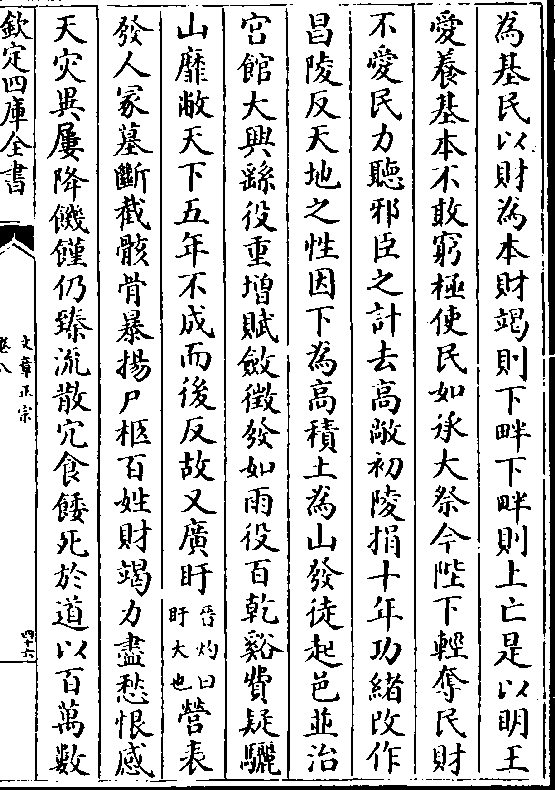 為基民以財為本財竭則下畔下畔則上亡是以明王
愛養基本不敢窮極使民如承大祭今陛下輕奪民財
不愛民力聽邪臣之計去高敞初陵捐十年功緒改作
昌陵反天地之性因下為高積土為山發徒起邑並治
宫館大興繇役重增賦斂徵發如雨役百乾谿費疑驪
山靡敝天下五年不成而後反故又廣盱晉灼曰盱大也營表
發人冢墓斷截骸骨暴揚尸柩百姓財竭力盡愁恨感
天灾異屢降饑饉仍臻流散冗食餧死於道以百萬數
欽定四庫全書
文章正宗
卷八
四十六